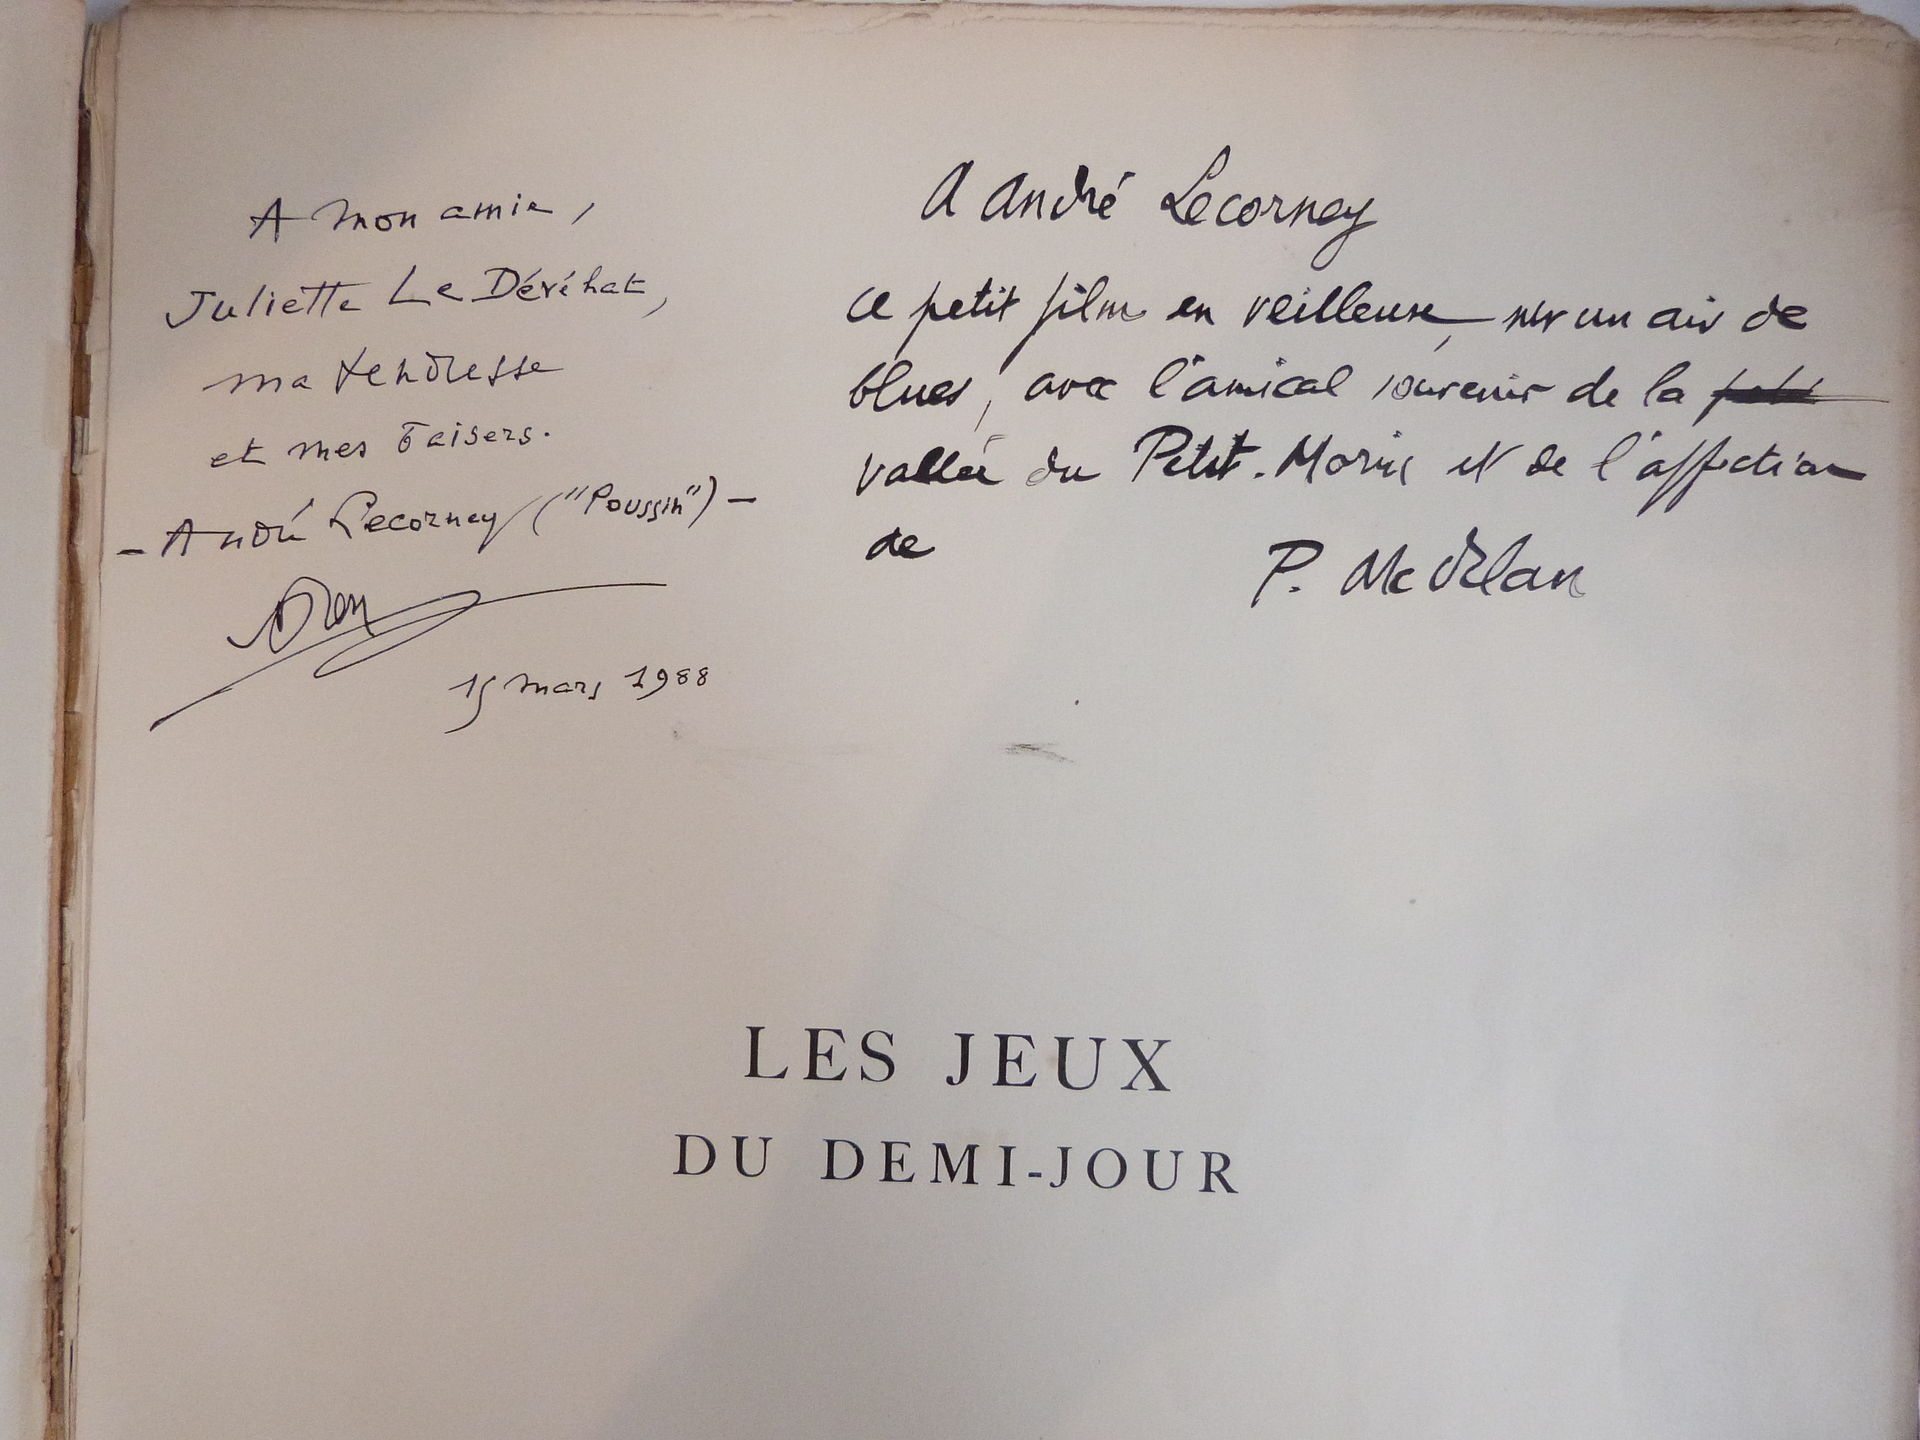 A mon amie,
Juliette Le Dévéhat,
ma tendresse
et mes baisers.
– André Lecorney ("Poussin") –
15 mars 1988
A André Lecorney
ce petit film en veilleuse, sur un air de
blues, avec l'amical souvenir de la
vallée du Petit-Morin et de l'affection
de
P. Mc Orlan
LES JEUX
DU DEMI-JOUR